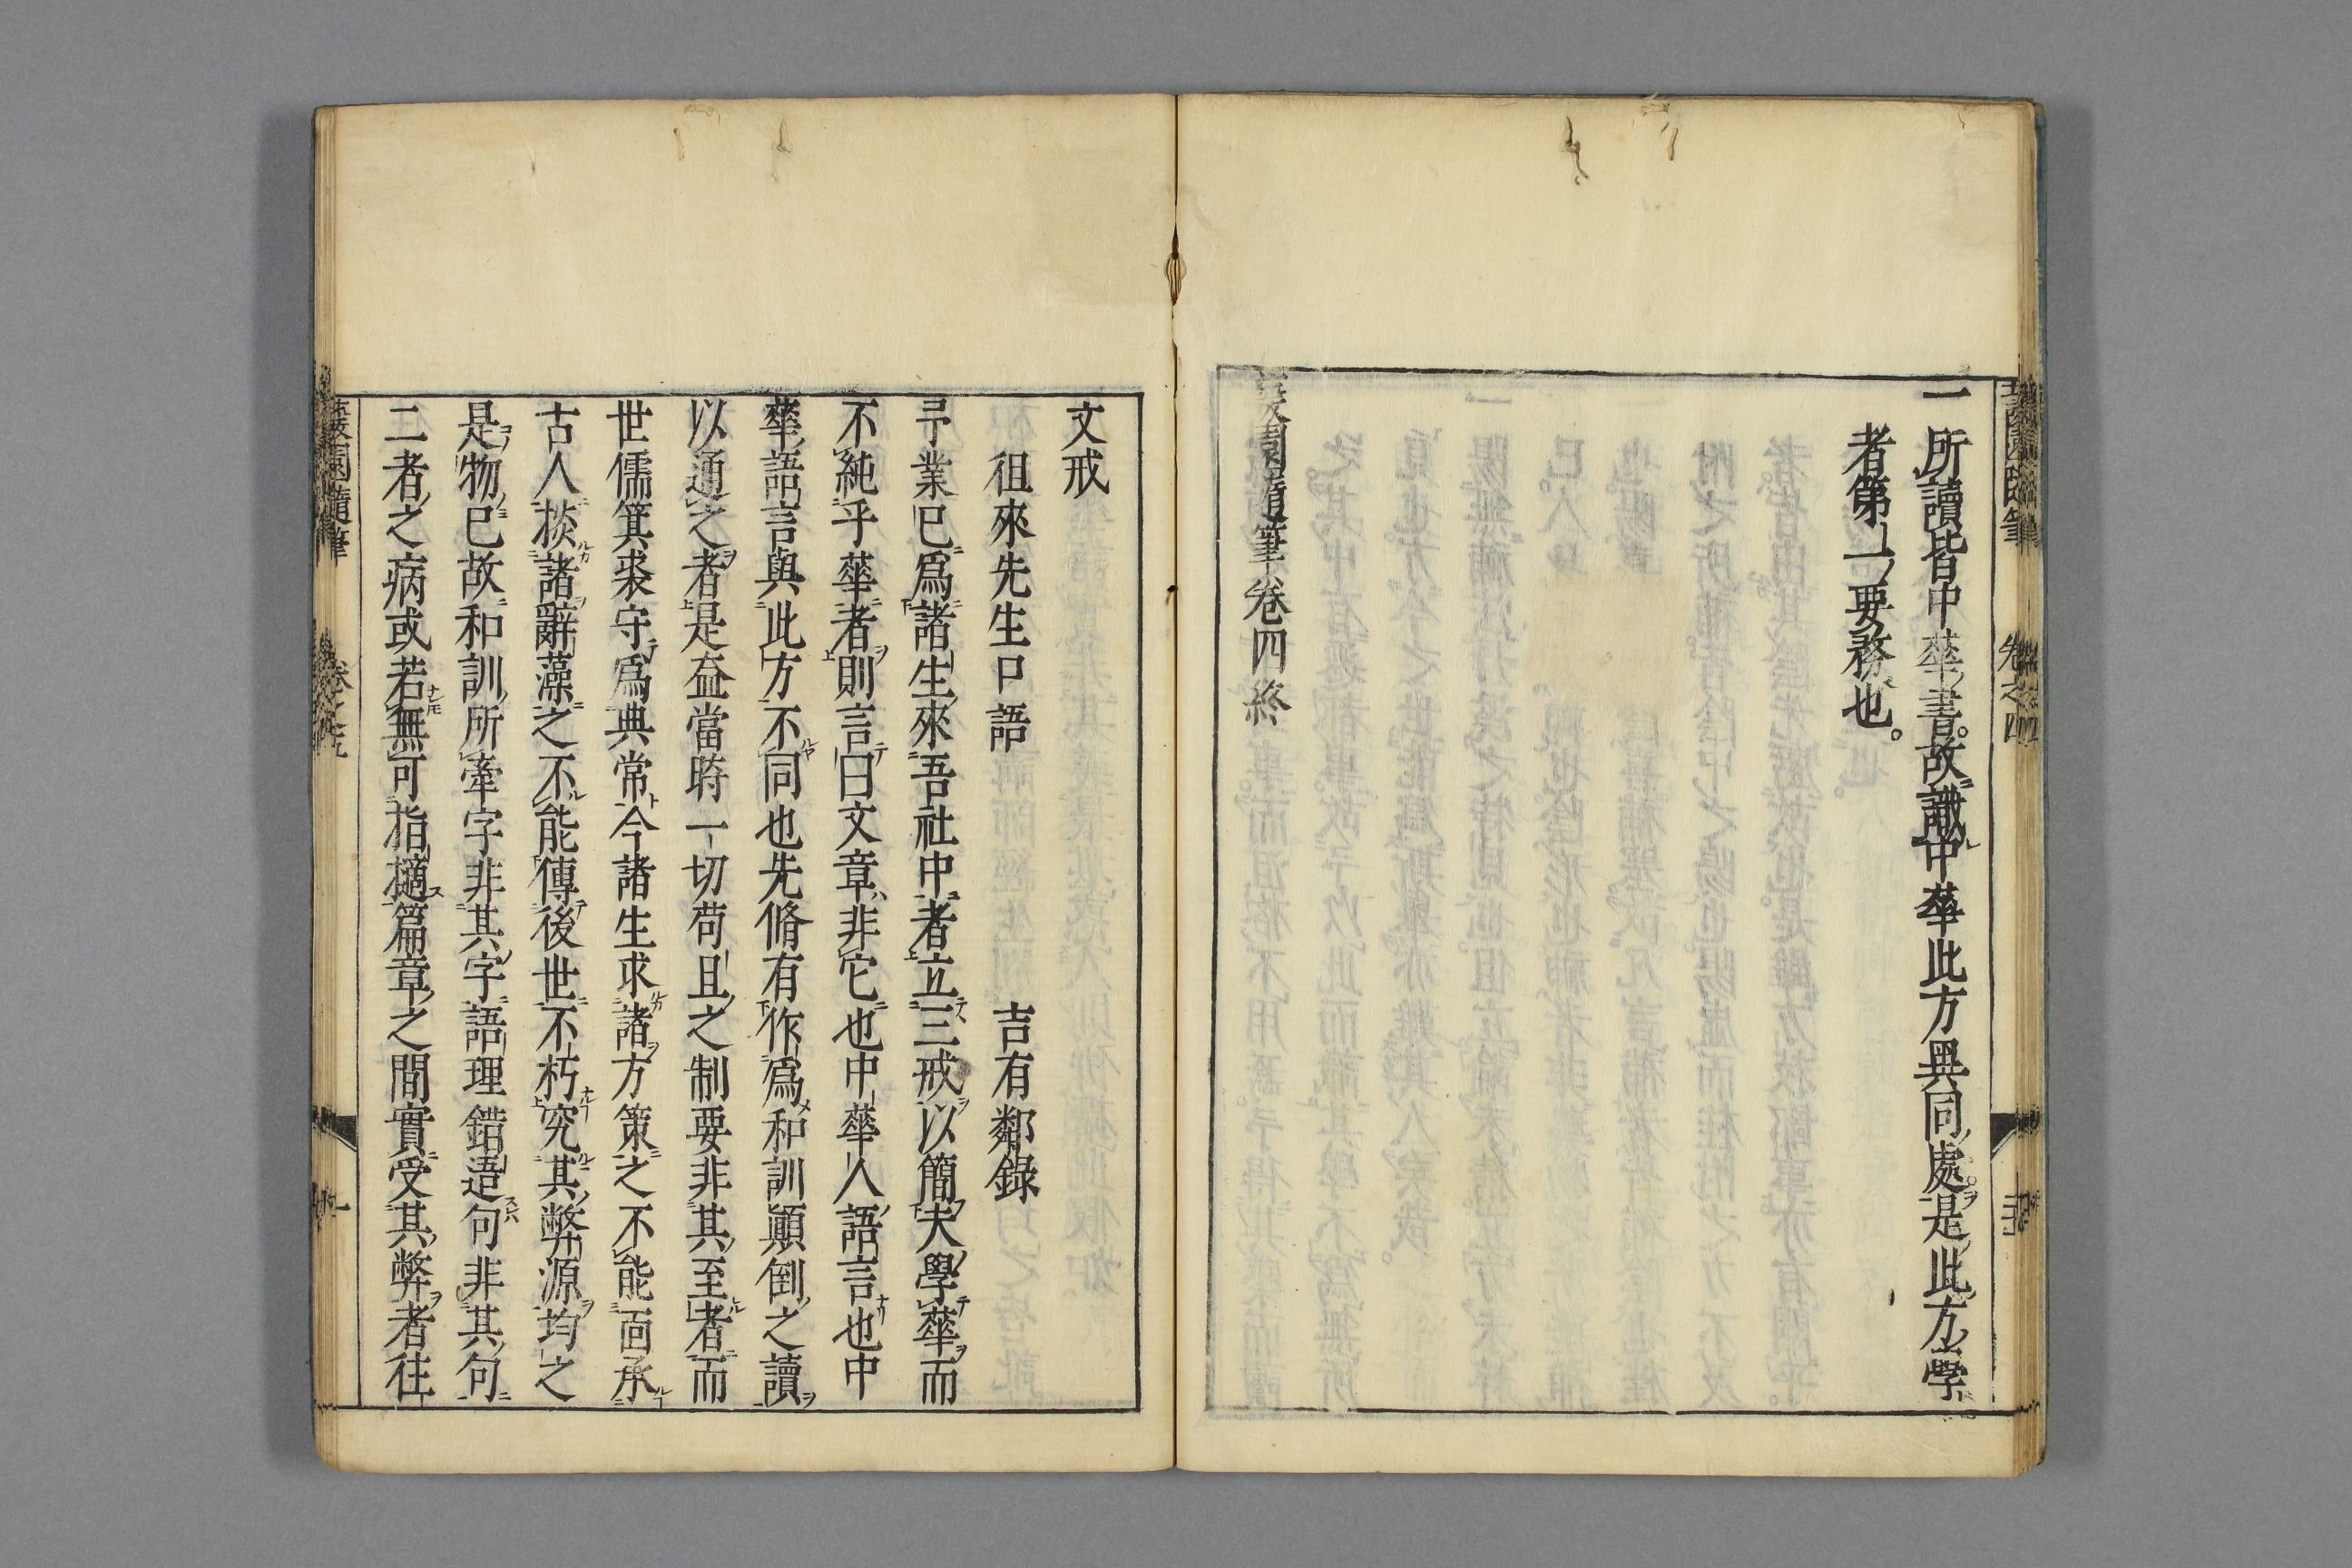 一所讀皆中華書。故識中華此方異同處。是此方學
者第一要務也。
蘐園隨筆卷四終
文戒
徂來先生口語　吉有鄰錄
予業已爲諸生來吾社中者立三戒以簡夫學華而
不純乎華者則言曰文章非它也中華人語言也中
華語言與此方不同也先脩有作爲和訓顚倒之讀
以通之者是益當時一切苟且之制要非其至者而
世儒箕裘守爲典常今諸生求諸方策之不能面承
古人掞諸辭藻之不能傳後世不朽究其弊源均之
是物已故和訓所牽字非其字語理錯逜句非其句
二者之病或若無可指擿篇章之間實受其弊者往
蘐園隨筆